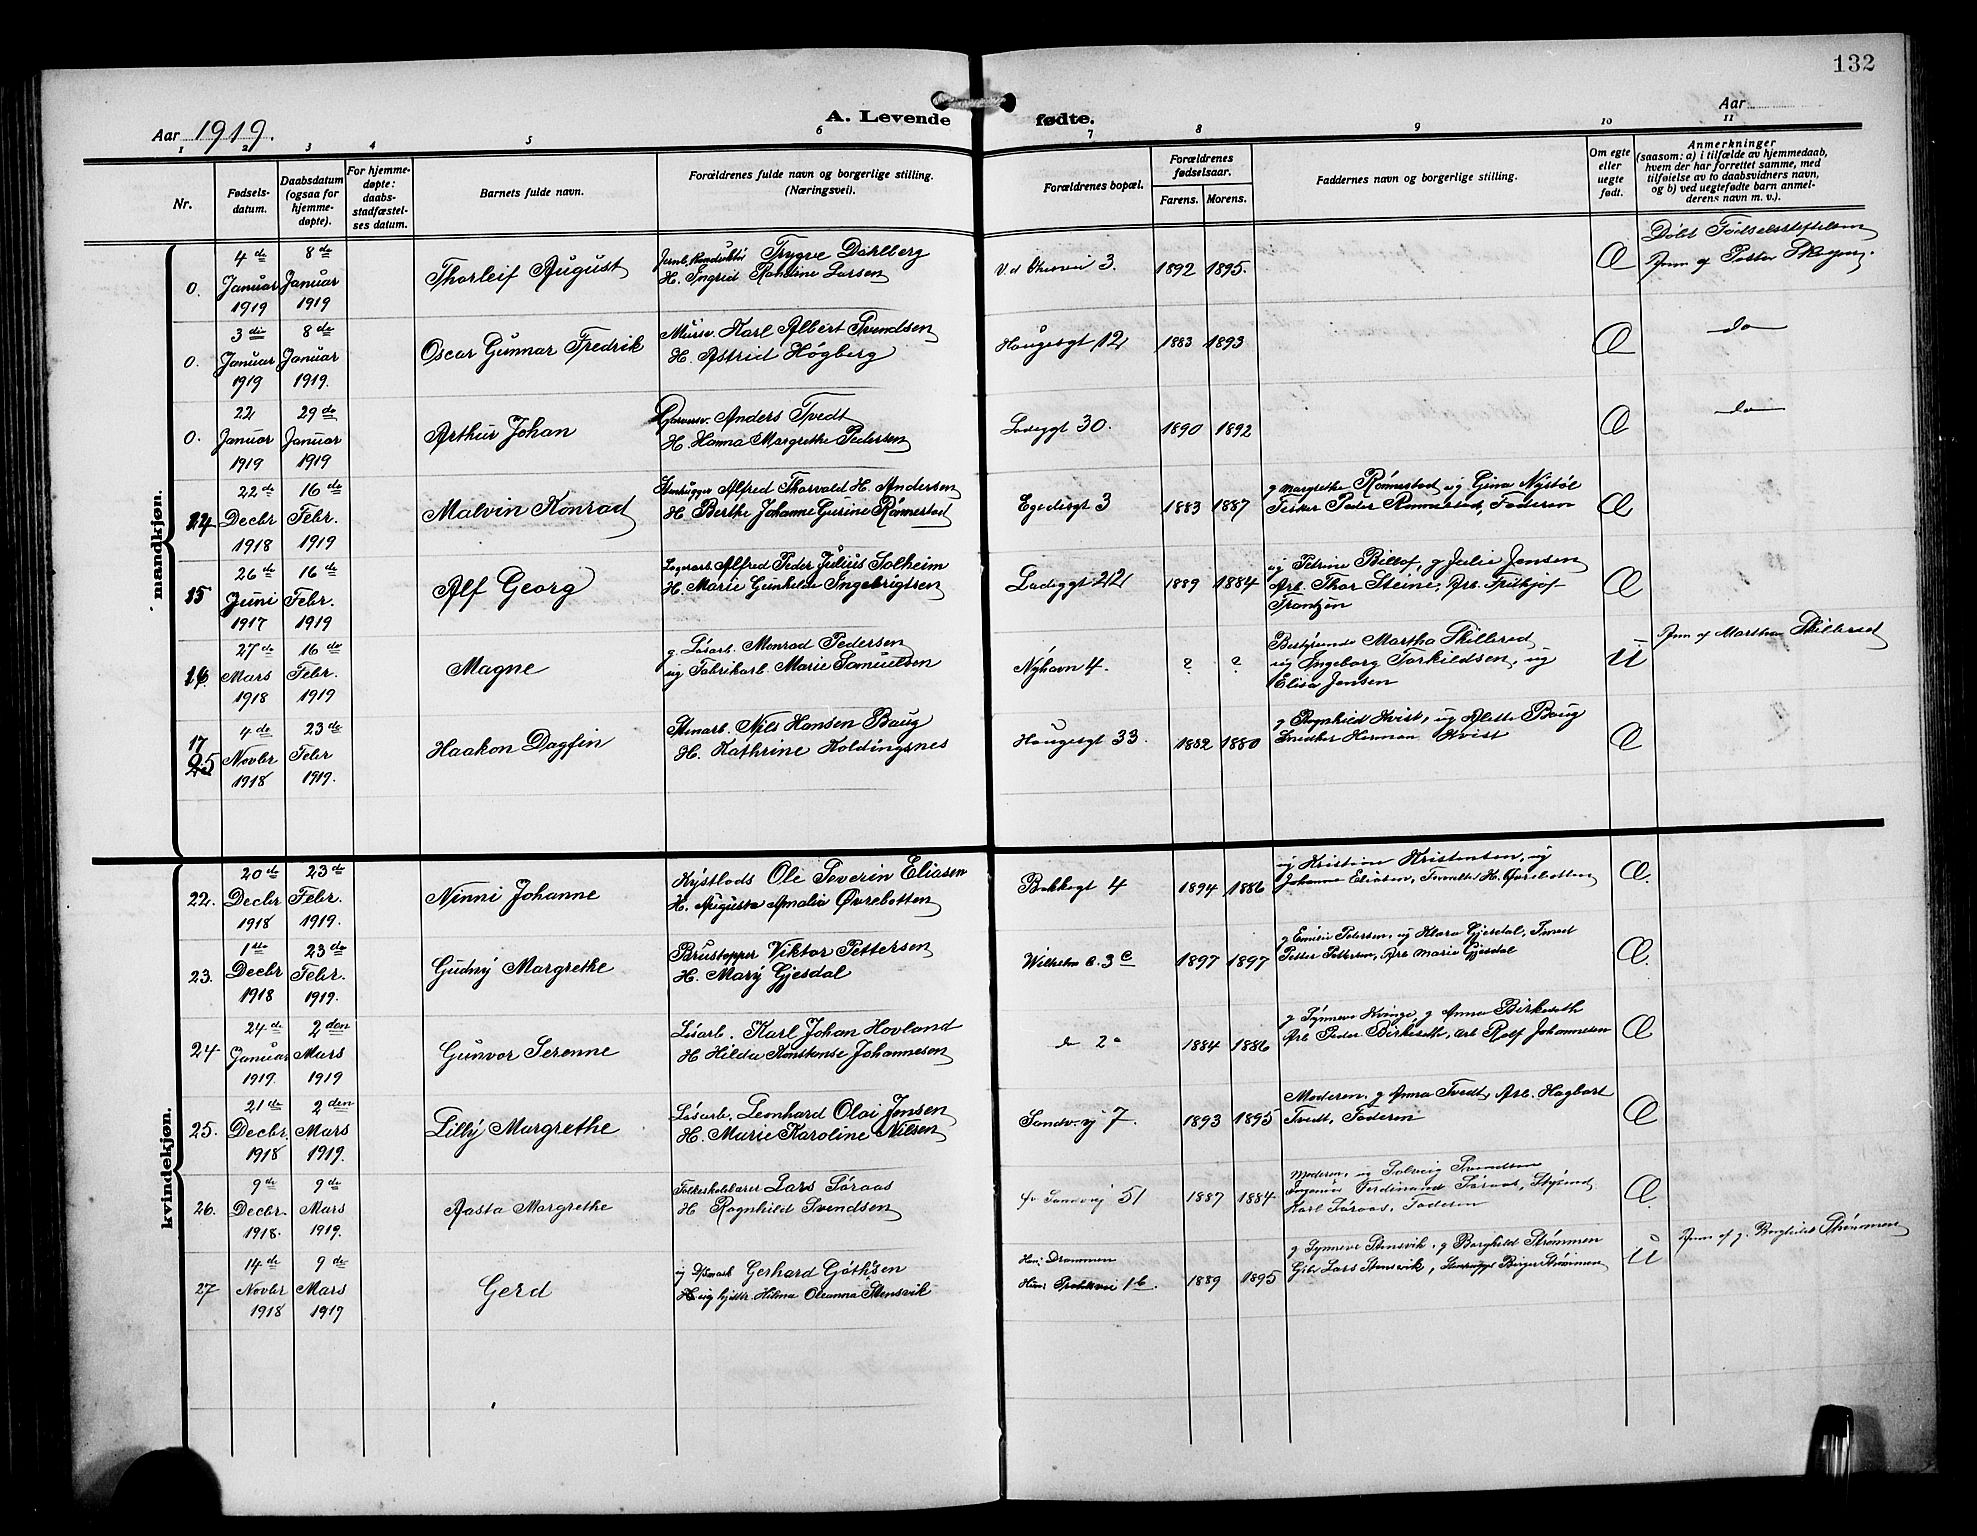 132
Aar 1919.
A. Levende fødte.
Aar
1 2 3 4 5 6 7 8 9 10 11
Nr.
Fødsels-
datum.
Daabsdatum
(ogsaa for
hjemme-
døpte).
For hjemme-
døpte:
daabs-
stadfæstel-
ses datum.
Barnets fulde navn.
Forældrenes fulde navn og borgerlige stilling.
(Næringsvei).
Forældrenes bopæl.
Forældrenes
fødselsaar.
Farens. Morens.
Faddernes navn og borgerlige stilling.
Om egte
eller
uegte
født.
Anmerkninger
(saasom: a) i tilfælde av hjemmedaab,
hvem der har forrettet samme, med
tilføielse av to daabsvidners navn,
og b) ved uegtefødte barn anmel-
derens navn m. v.).
mandkjøn.
0.
4 de
Januar
1919
8 de
Januar
1919
Thorleif August
Trygve Dahlberg
H. Ingrid Larsen
3.
1892 1895.
Æ
Døbt Fødselsstiftelsen
0.
3 die
Januar
1919
8 de
Januar
1919.
Oscar Gunnar Fredrik
Mursv. Karl Albert Svendsen
H. Astrid Høgberg
Haugesgt 12
1883 1893
Æ
do
0.
22
Januar
1919
29 de
Januar
1919
Arthur Johan
Anders Tvedt
H. Hanna Margrethe Pedersen
Ladeggt 30.
1890 1892
Æ
do
24
22 de
Decbr
1918
16 de
Febr.
1919
Malvin Konrad
Stenhugger Alfred Thorvald H. Andersen
H. Berthe Johanne Gurine Rønnestad
Egedisgt 3
1883 1887
g Margrethe Rønnestad, ug Gina Nystøl
Fisker Peder Rønnestad, Faderen
Æ
15
26 de
Juni
1917
16 de
Febr.
1919
Alf Georg
Lagerarb. Alfred Peder Julius Solheim
H. Marie Gunhilde Ingebrigtsen
Ladeggt 22
1889 1884
ug Petrine Billof, g Julie Jensen
Arb. Thor Steine, Arb. Fritjof
Frantzen
Æ
16
27 de
Mars
1918
16 de
Febr.
1919
Magne
g. Løsarb. Monrad Pedersen
ug Fabrikarb. Marie Samuelsen
Nyhavn 4.
? ?
Bestyrerinde Martha Skillered
ug Ingeborg Torkildsen, ug
Elisa Jensen
U
Anm af Martha Skillered
17
25
4 de
Novbr
1918
23 de
Febr
1919.
Haakon Dagfin
Stenarb. Nils Hansen Baug
H. Kathrine Koldingsnes
Haugesgt 33.
1882 1880
g Ragnhild Kvist, ug Alette Baug
Snedker Herman Kvist
Æ
kvindekjøn.
22.
20 de
Decbr
1918
23 de
Febr.
1919.
Ninni Johanne
Kystlods Ole Severin Eliasen
H. Augusta Amalia Øvrebotten
Bakkegt 4
1894 1886
ug Kristine Kristensen, ug
Johanne Eliasen, H. Øvrebotten
Æ.
23.
1 de
Decbr
1918
23 de
Febr.
1919.
Gudny Margrethe
Brustopper Viktor Pettersen
H. Mary Gjesdal
Wilhelm B. 3 C
1897 1897
g Emilie Petersen, ug Klara Gjesdal,
Petter Pettersen, Arb Marie Gjesdal
Æ.
24
24 de
Januar
1919.
2 den
Mars
1919
Gunvor Serenne
Løsarb. Karl Johan Hovland
H Hilda Konstanse Johannesen
do 2 a
1884 1886
g Synneve Kvinge, g Anna Birkeseth
Arb Peder Birkeseth, Arb Rolf Johannesen
Æ
25.
21 de
Decbr.
1918
2 den
Mars
1919.
Lilly Margrethe
Løsarb. Leonhard Olai Jensen
H. Marie Karoline Nilsen
Sandv.vj 7.
1893 1895
Moderen, g Anna Tvedt, Arb. Hagbart
Tvedt, Faderen
Æ
26.
9 de
Decbr.
1918.
9 de
Mars
1919.
Aasta Margrethe
Folkeskolelærer Lars Søraas
H Ragnhild Svendsen
Sandvvj 51
1887 1884
Moderen, ug Solveig Svendsen
Ingeniør Ferdinand Søraas,
Karl Søraas, Faderen
Æ.
27
14 de
Novbr
1918
9 de
Mars
1919
Gerd
ug Gerhard Gøthsen
ug Hilma Oleanna Stensvik
Han: Drammen
Hun: 1 b.
1889 1895
g Synneve Stensvik, g Borghild Strømmen
Gbr Lars Stensvik, Birger Strømmen
U
Anm af g. Borghild Strømmen